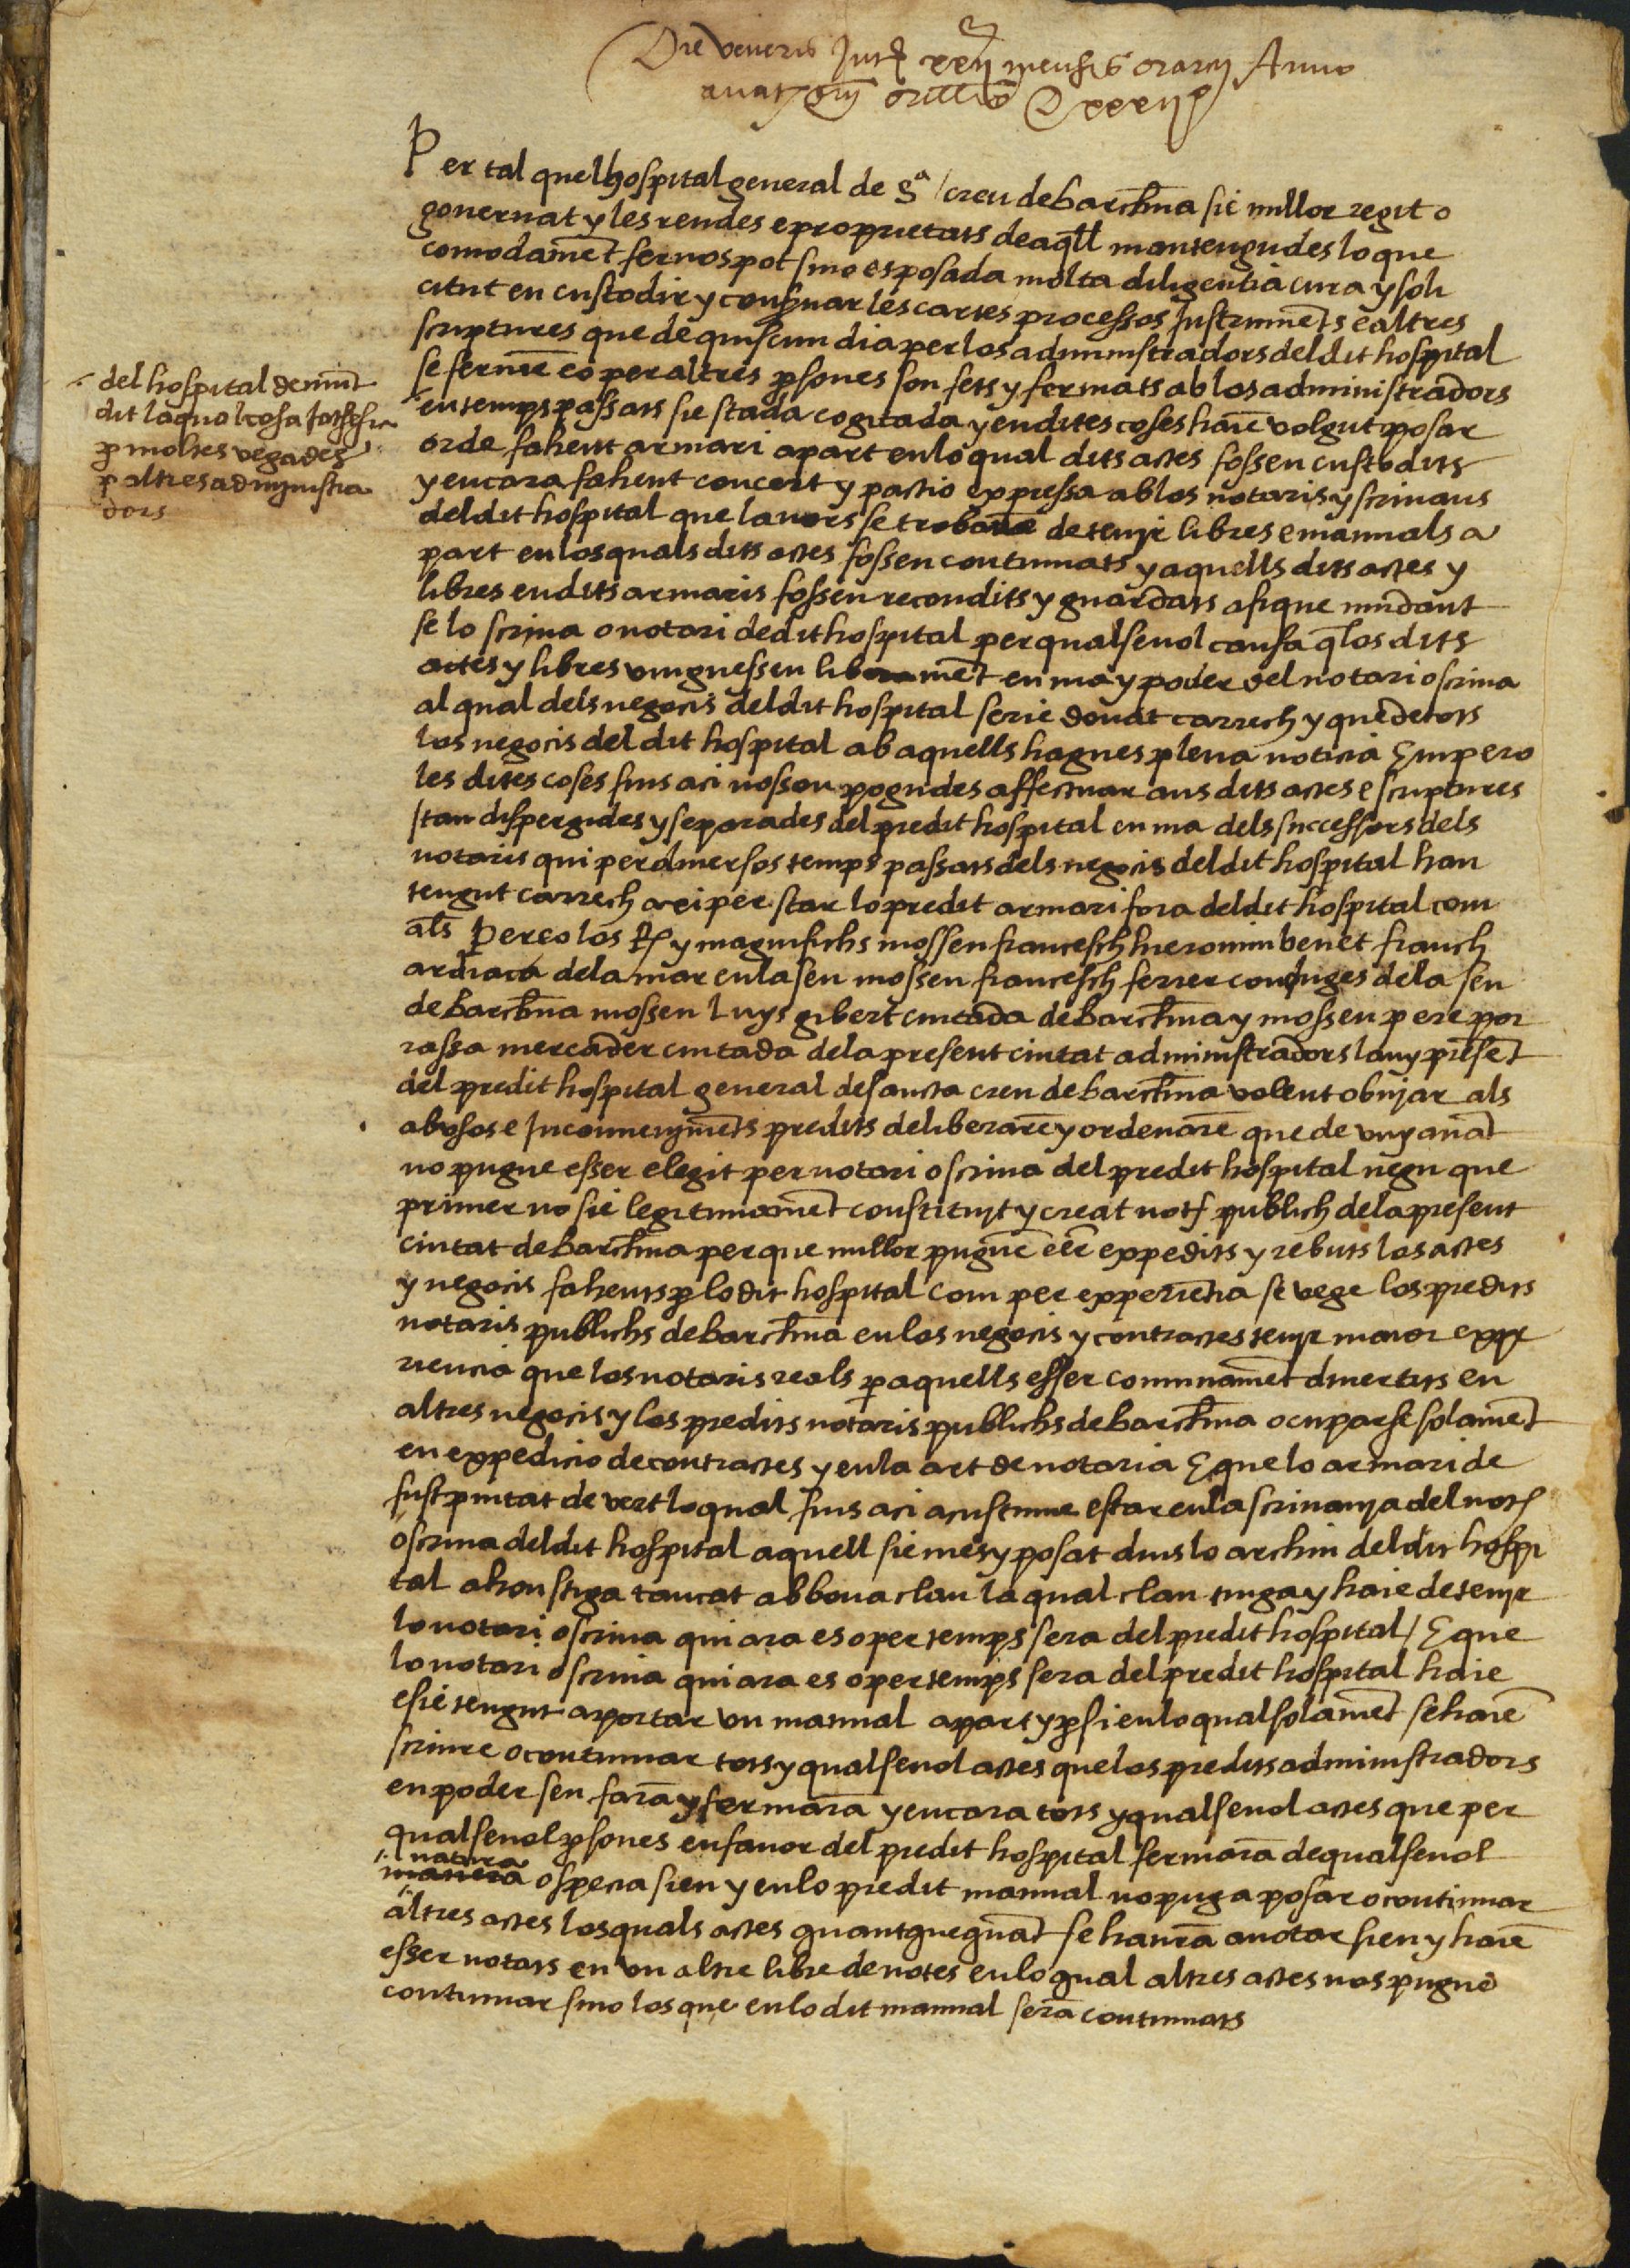 Die veneris Intt xxij mensis marcij Anno
anatte dnj Millo D xxxiij
Per tal quel hospital general de Sª creu de barchna sie millor regit o
gouernat y les rendes e proprietats de aqll mantengudes lo que
comodament fer nos pot sino es posada molta diligentia cura y soli
citut en custodir y conseruar les cartes processos Instruments e altres
scriptures que de quiscun dia per los administradors del dit hospital
se fermē eo per altres psones son fets y fermats ab los administradors
del hospital demunt
dit la qual cosa jatsesia
p moltes vegades
p altres administra
dors
en temps passats sie stada cogitada y en dites coses haiē volgut posar
orde fahent armari apart en lo qual dits actes fossen custodits
y encara fahent concert y pactio expressa ab los notaris y scriuans
del dit hospital que lauors se trobauē de tenir libres e manuals a
part en los quals dits actes fossen continuats y aquells dits actes y
libres en dits armaris fossen recondits y guardats afique mudant
se lo scriua o notari de dit hospital per qualseuol causa q los dits
actes y libres vinguessen liberamēt en ma y poder del notari o scriua
al qual dels negocis del dit hospital serie donat carrech y que de tots
los negocis del dit hospital ab aquells hagues plena noticia Empero
les dites coses fins aci nosson pogudes affectuar ans dits actes e scriptures
stan dispergides y separades del predit hospital en ma dels successors dels
notaris qui per diuersos temps passats dels negocis del dit hospital han
tengut carrech axi per star lo predit armari fora del dit hospital com
als Per eo los Rts y magnifichs mossen francesch hieronim benet franch
ardiaca de la mar en la seu mossen francesch ferrer canonges de la seu
de Barchna mossen Luys gibert ciutada de Barchna y mossen pere por
rassa mercader ciutada de la present ciutat administradors lany presēt
del predit hospital general de sancta creu de barchna volent obujar als
abusos e Inconuenjmēts predits deliberarē y ordenarē que de vuy auāt
no pugue esser elegit per notari o scriua del predit hospital negu que
primer no sie legitimamēt constituyt y creat not publich de la present
ciutat de Barchna perque millor puguē eēr expedits y rebuts los actes
y negocis fahents p lo dit hospital com per experiētia se vege los predits
notaris publichs de barchna en los negocis y contractes tenir maior expe
riencia que los notaris reals p aquells esser comunamēt diuertits en
altres negocis y los predits notaris publichs de barchna ocuparse solamēt
en expedicio de contractes y en la art de notaria E que lo armari de
fust pintat de vert lo qual fins aci acustume estar en la scriuanja del not
o scriua del dit hospital aquell sie mes y posat dins lo archiu del dit hospi
tal ahon stiga tancat ab bona clau la qual clau tinga y haie de tenir
lo notari o scriua qui ara es o per temps sera del predit hospital / E que
lo notari o scriua qui ara es o per temps sera del predit hospital haie
e sie tengut aportar vn manual apart y p si en lo qual solamēt se haiē
scriure o continuar tots y qualseuol actes que los predits administradors
en poder seu farā y fermarā y encara tots y qualseuol actes que per
qualseuol psones en fauor del predit hospital fermarā de qualseuol
natura
manera o specia sien y en lo predit manual no puga posar o continuar
altres actes los quals actes quantque quāt se haurā a notar sien y haiē
esser notats en vn altre libre de notes en lo qual altres actes nos puguē
continuar sino los que en lo dit manual serā continuats